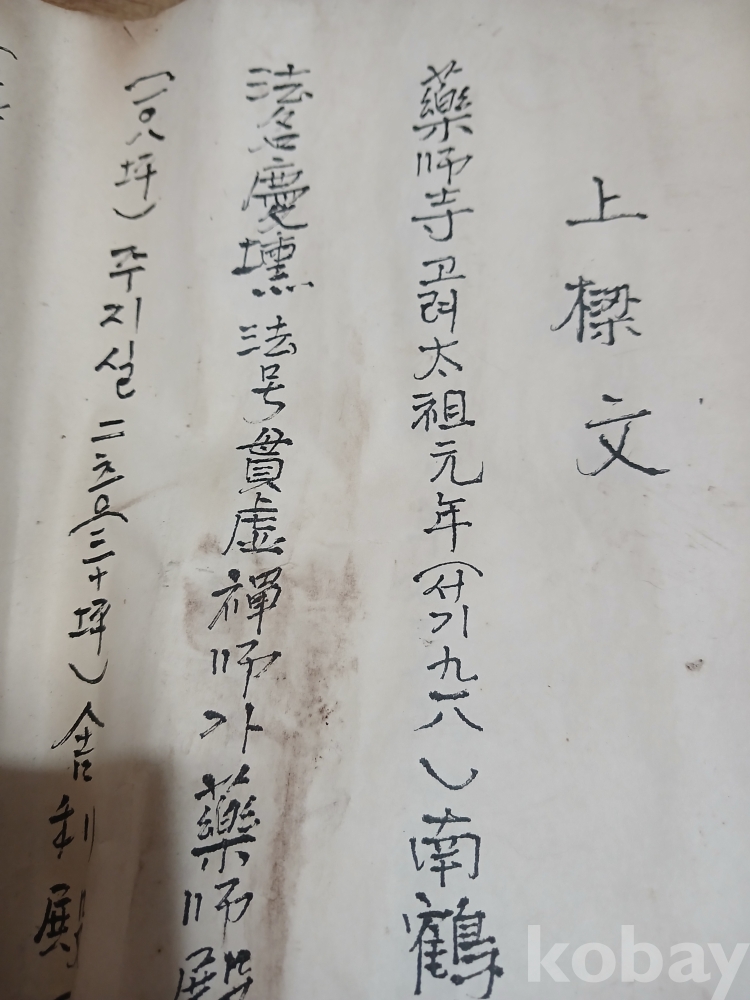 上樑文
藥師寺 고려太祖元年(서기九一八) 南鶴
法名慶壎 法号貫虛禪師가 藥師殿
(一0八坪) 주지실 二츠으(三十坪) 舍利殿
kobay